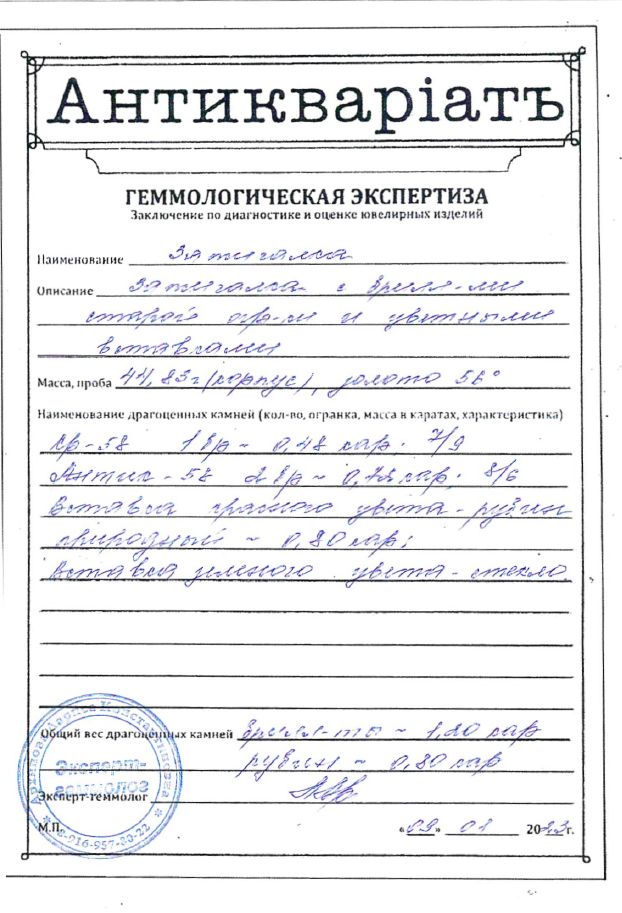 Антикваріатъ
ГЕММОЛОГИЧЕСКАЯ ЭКСПЕРТИЗА
Заключение по диагностике и оценке ювелирных изделий
Наименование Зажигалка
Описание Зажигалка с брилл-ми
старой огр-ки и цветными
вставками
Масса, проба 44,83г (корпус), золото 56°
Наименование драгоценных камней (кол-во, огранка, масса в каратах, характеристика)
Кр-58 1 бр ~ 0,48 кар; 7/9
Антик - 58 2 бр ~ 0,72 кар; 8/6
Вставка красного цвета - рубин
природный ~ 0,80 кар;
Вставка зеленого цвета - стекло.
Общий вес драгоценных камней Брилл-ты ~ 1,20 кар
рубин ~ 0,80 кар
Эксперт-геммолог
М.П. «09» 01 2023г.
Константиновна
Эксперт-
геммолог